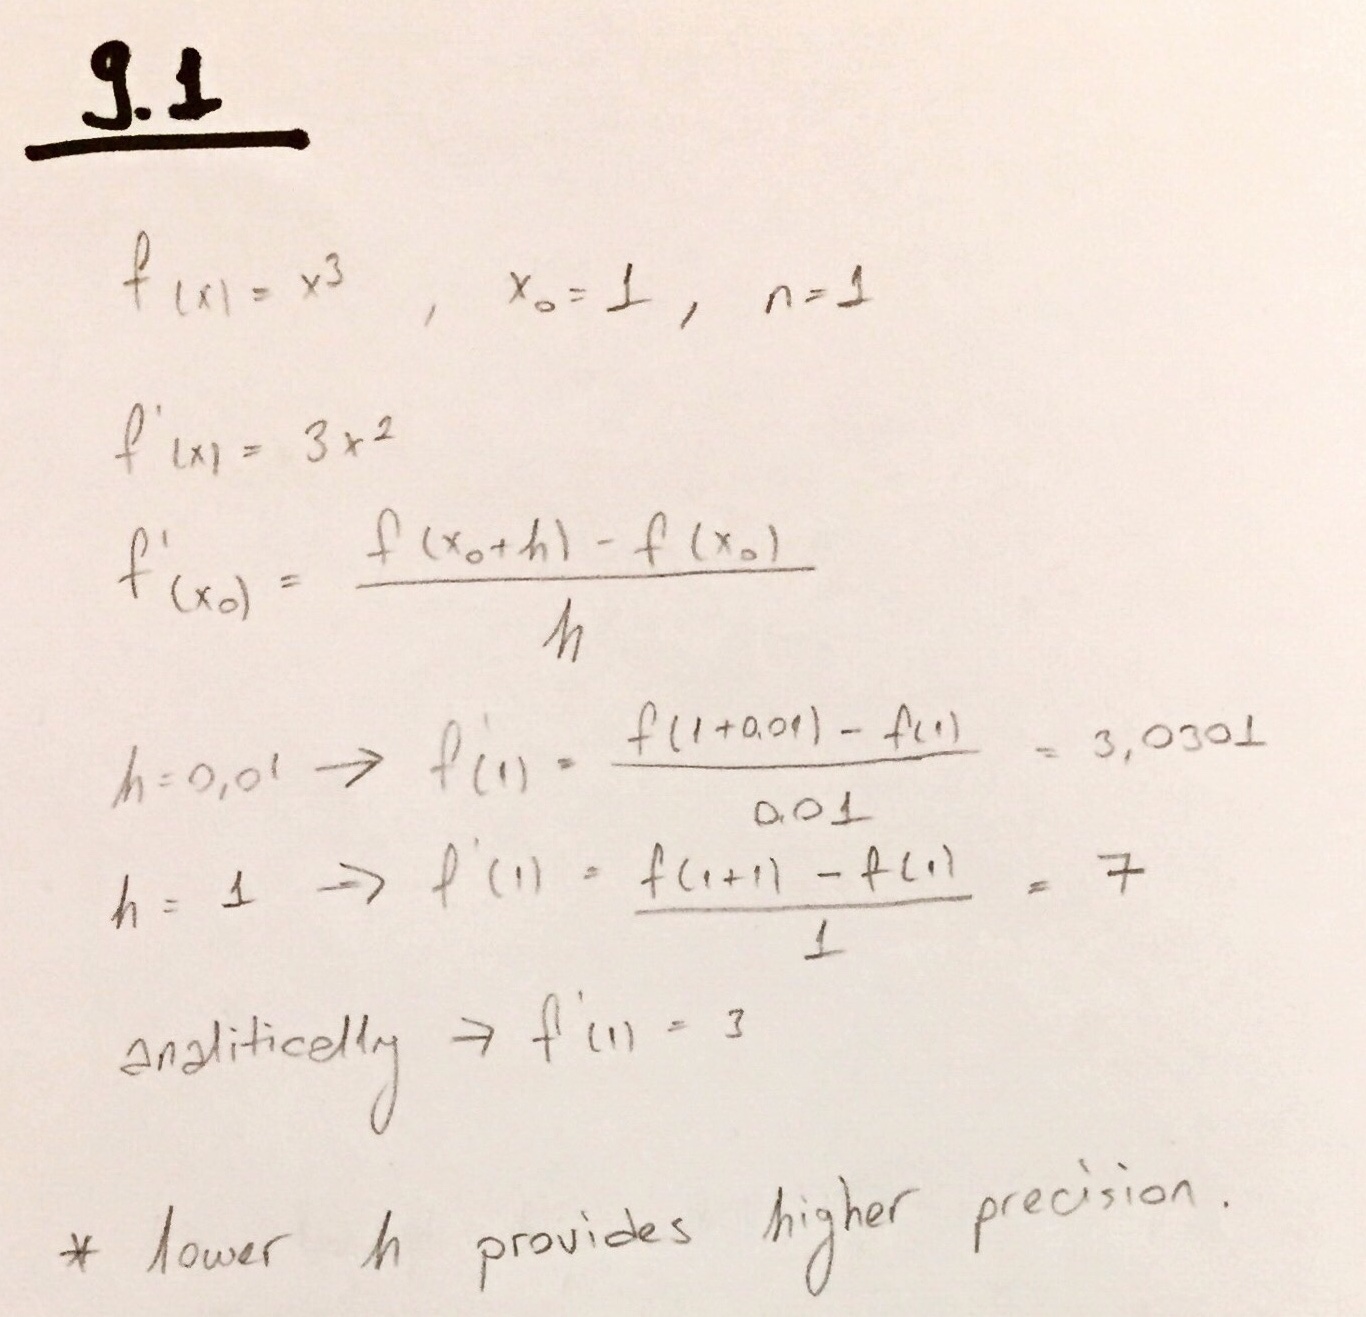 9.1
f(x) = x³ , x₀ = 1 , n = 1
f'(x) = 3x²
f'(x₀) = f(x₀+h) - f(x₀) / h
h = 0,01 → f'(1) = f(1+0.01) - f(1) / 0.01 = 3,0301
h = 1 → f'(1) = f(1+1) - f(1) / 1 = 7
analiticelly → f'(1) = 3
* lower h provides higher precision.